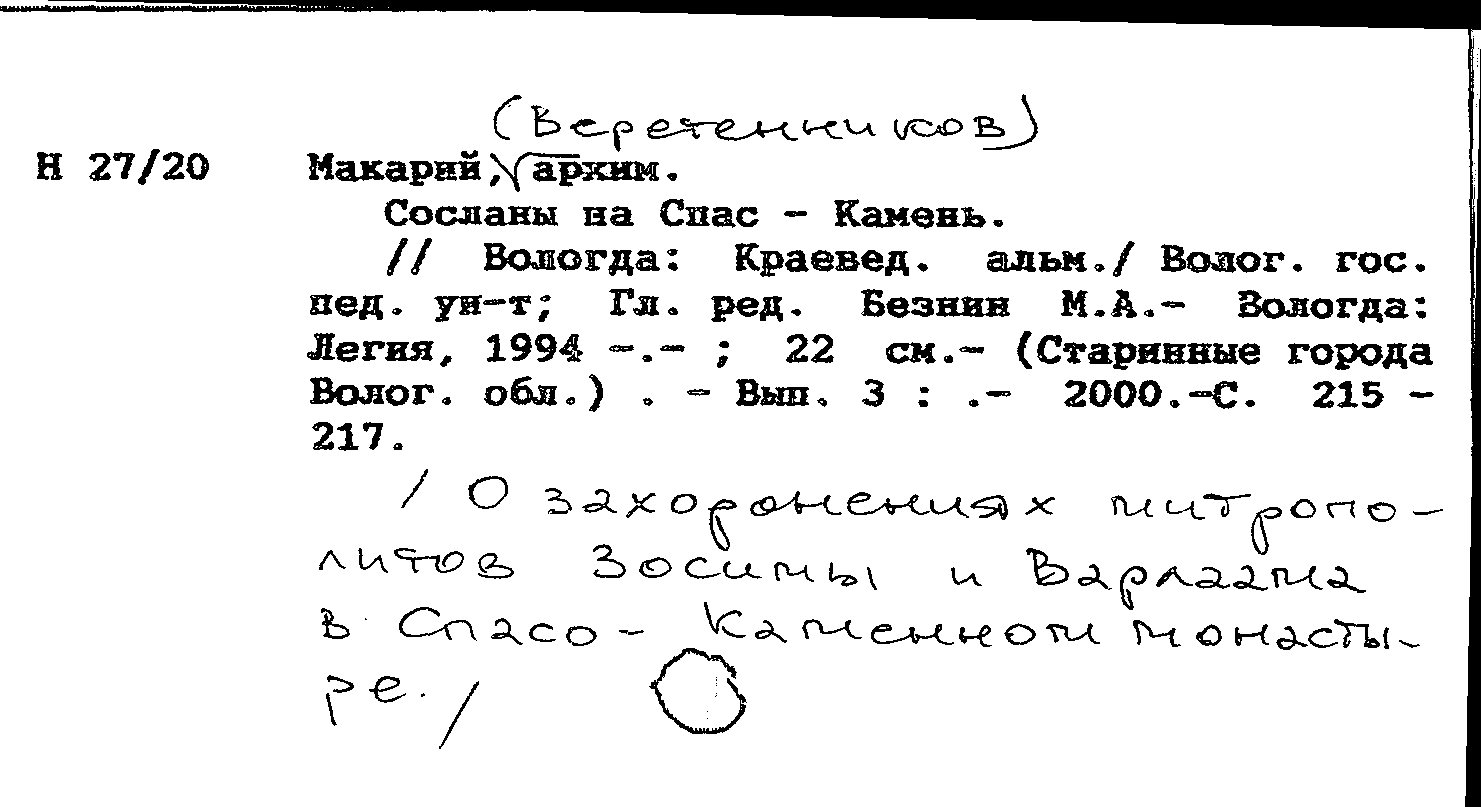 (Веретенников)
Н 27/20 Макарий, архим.
Сосланы на Спас - Камень.
// Вологда: Краевед. альм./ Волог. гос.
пед. ун-т; Гл. ред. Безнин М.А.- Вологда:
Легия, 1994 -.- ; 22 см.- (Старинные города
Волог. обл.) . - Вып. 3 : .- 2000.-С. 215 -
217.
/ О захоронениях митропо-
литов Зосимы и Варлаама
в Спасо- Каменном монасты-
ре. /